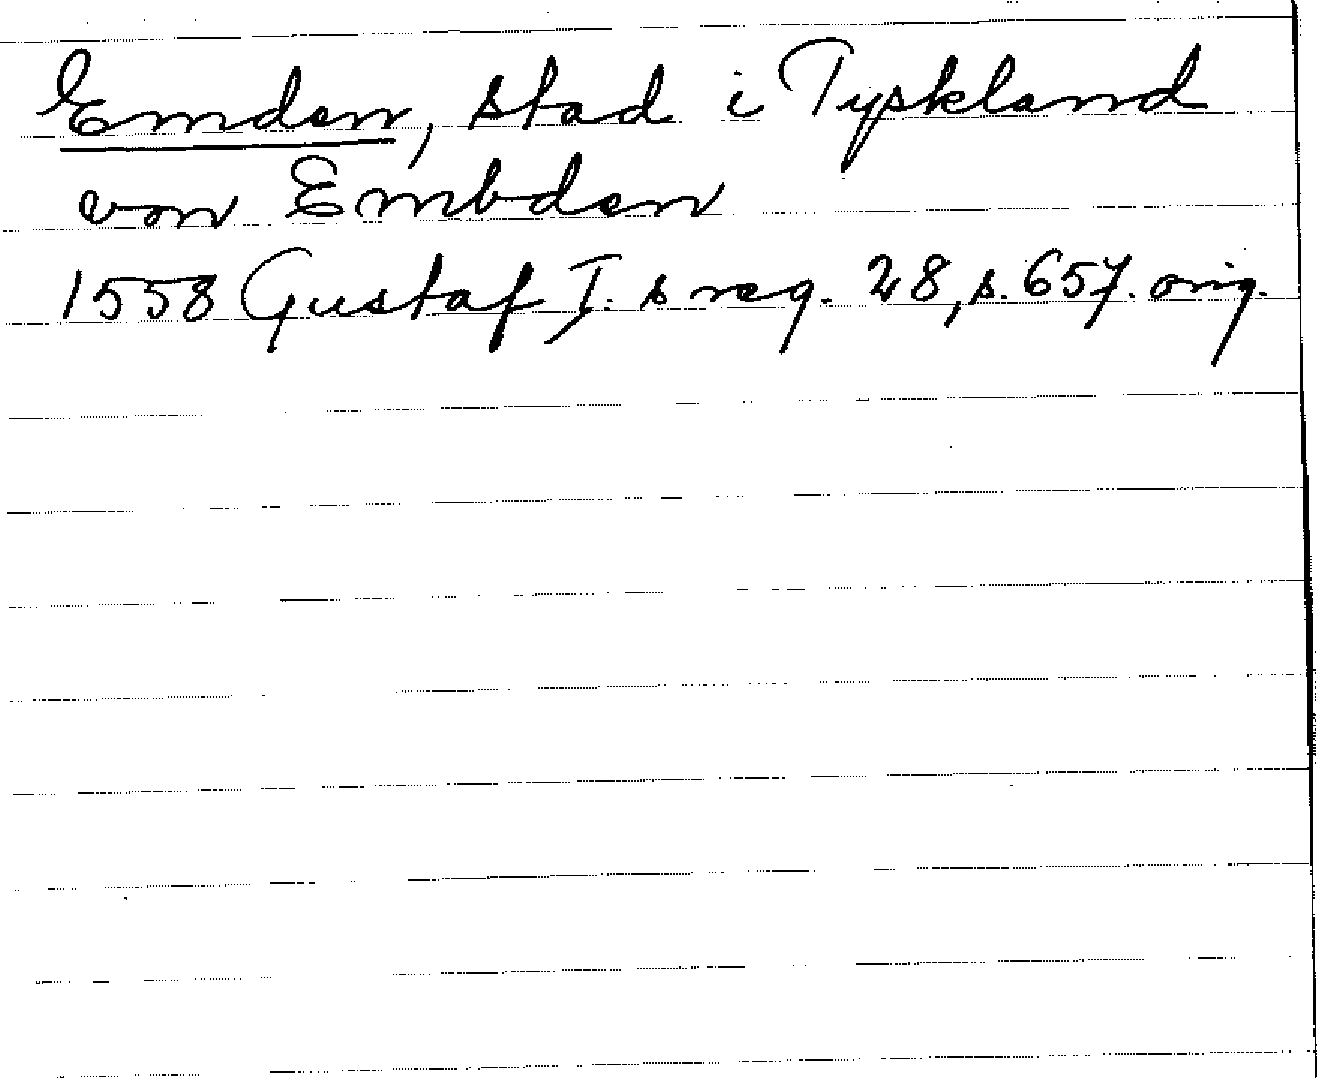 Emden, stad i Tyskland
von Embden
1558 Gustaf I. s reg. 28, s. 657. orig.